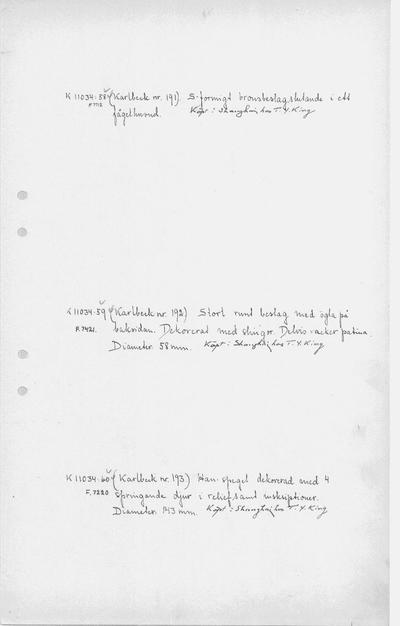 K 11034:58 (Karlbeck nr. 191) S-formigt bronsbeslag slutande i ett
fågelhuvud. Köpt: Shanghai hos T. Y. King
K 11034:59 (Karlbeck nr. 192) Stort runt beslag med ögla på
R.7421. baksidan. Dekorerat med slingor. Delvis vacker patina.
Diameter 58 mm. Köpt: Shanghai hos T. Y. King
K 11034:60 (Karlbeck nr. 193) Han-spegel dekorerad med 4
F.7220 springande djur i relief samt inskriptioner.
Diameter 143 mm. Köpt: Shanghai hos T. Y. King